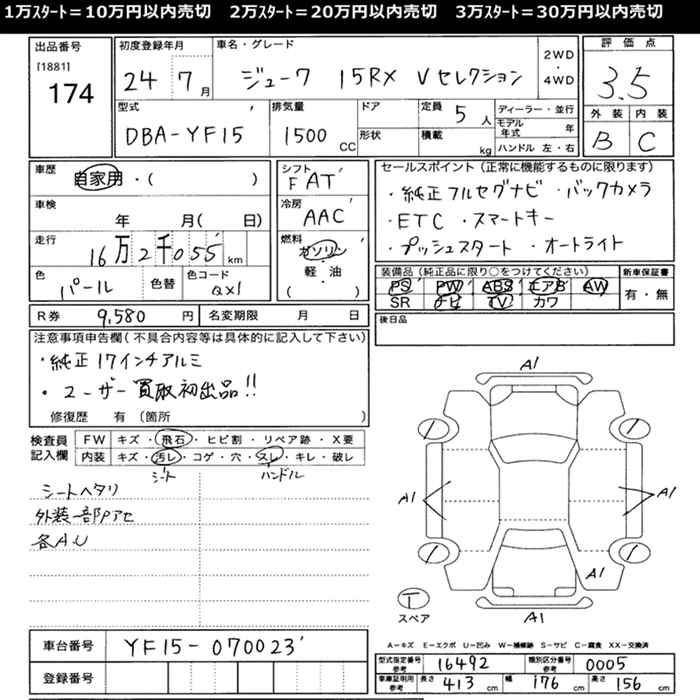 1万スタート＝10万円以内売切　2万スタート＝20万円以内売切　3万スタート＝30万円以内売切
出品番号
[1881]
174
初度登録年月
24 7月
車名・グレード
ジューク 15RX Vセレクション
2WD
・
4WD
評価点
3.5
外装 内装
B C
型式
DBA-YF15
排気量
1500 CC
ドア
形状
定員 5人
積載 kg
ディーラー・並行
モデル年式 年
ハンドル 左・右
車歴
自家用・( )
車検
年 月( 日)
走行
16万2千055 km
色
パール
色替
色コード
QX1
シフト
FAT
冷房
AAC
燃料
ガソリン
・
軽・油
( )
セールスポイント（正常に機能するものに限ります）
・純正フルセグナビ ・バックカメラ
・ETC ・スマートキー
・プッシュスタート ・オートライト
装備品（純正品に限り○をつけてください）
PS PW ABS エアB AW
SR ナビ TV カワ
新車保証書
有・無
R券 9,580 円
名変期限 月 日
後日品
注意事項申告欄（不具合内容等は具体的に記入して下さい）
・純正17インチアルミ
・ユーザー買取初出品!!
修復歴 有（箇所 ）
検査員
記入欄
FW キズ・飛石・ヒビ割・リペア跡・X要
内装 キズ・汚レ・コゲ・穴・スレ・キレ・破レ
シート ハンドル
シートヘタリ
外装一部Pアセ
各A.U
A1
A1
A1
A1
A1
T
スペア
A－キズ E－エクボ U－凹み W－補修跡 S－サビ C－腐食 XX－交換済
車台番号 YF15-070023
登録番号
型式指定番号 参考 16492
類別区分番号 参考 0005
車庫証明用 参考 長さ 413 cm 幅 176 cm 高さ 156 cm